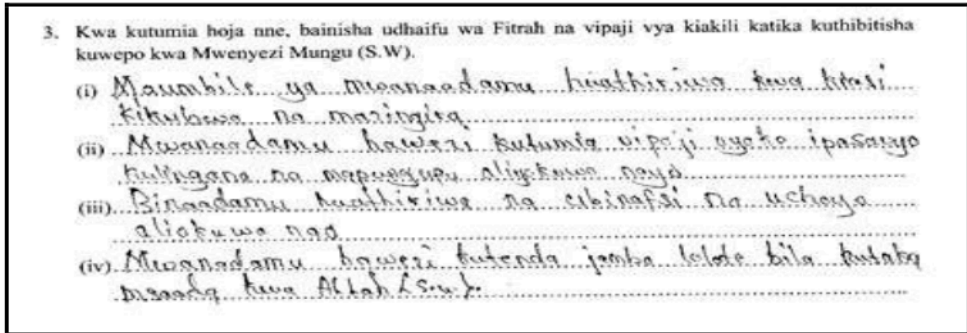 3. Kwa kutumia hoja nne, bainisha udhaifu wa Fitrah na vipaji vya kiakili katika kuthibitisha
kuwepo kwa Mwenyezi Mungu (S.W).
(i) Maumbile ya mwanaadamu huathiriwa kwa kiasi
kikubwa na mazingira
(ii) Mwanaadamu hawezi kutumia vipaji vyake ipasavyo
kulingana na mapungufu aliyokuwa nayo
(iii) Binaadamu huathiriwa na ubinafsi na uchoyo
aliokuwa nao
(iv) Mwanadamu hawezi kutenda jambo lolote bila kutaka
msaada kwa Allah (S.w).